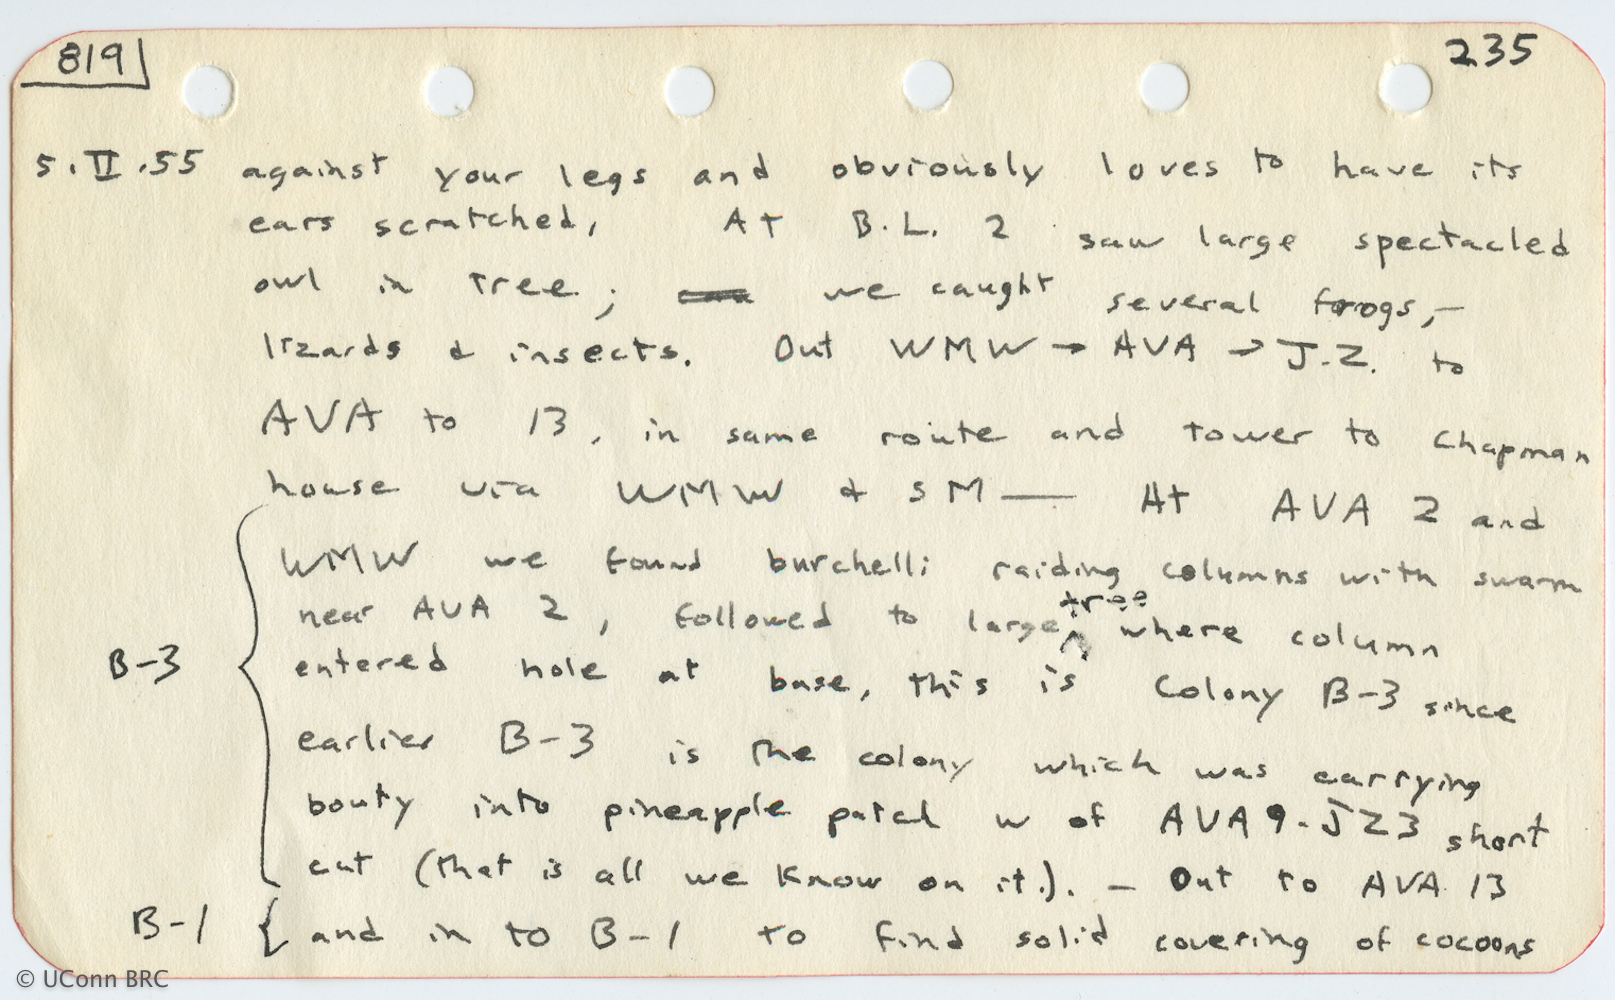 819 235
5.II.55 against your legs and obviously loves to have its
ears scratched, At B.L. 2 saw large spectacled
owl in tree; we caught several frogs,-
lizards & insects. Out WMW → AVA → J.Z. to
AVA to 13, in same route and tower to Chapman
house via WMW & SM — At AVA 2 and
WMW we found burchelli raiding columns with swarm
near AVA 2, followed to large tree where column
B-3 entered hole at base, this is Colony B-3 since
earlier B-3 is the colony which was carrying
bouty into pineapple patch w of AVA 9-JZ3 short
cut (that is all we know on it.). — Out to AVA 13
B-1 and in to B-1 to find solid covering of cocoons
© UConn BRC